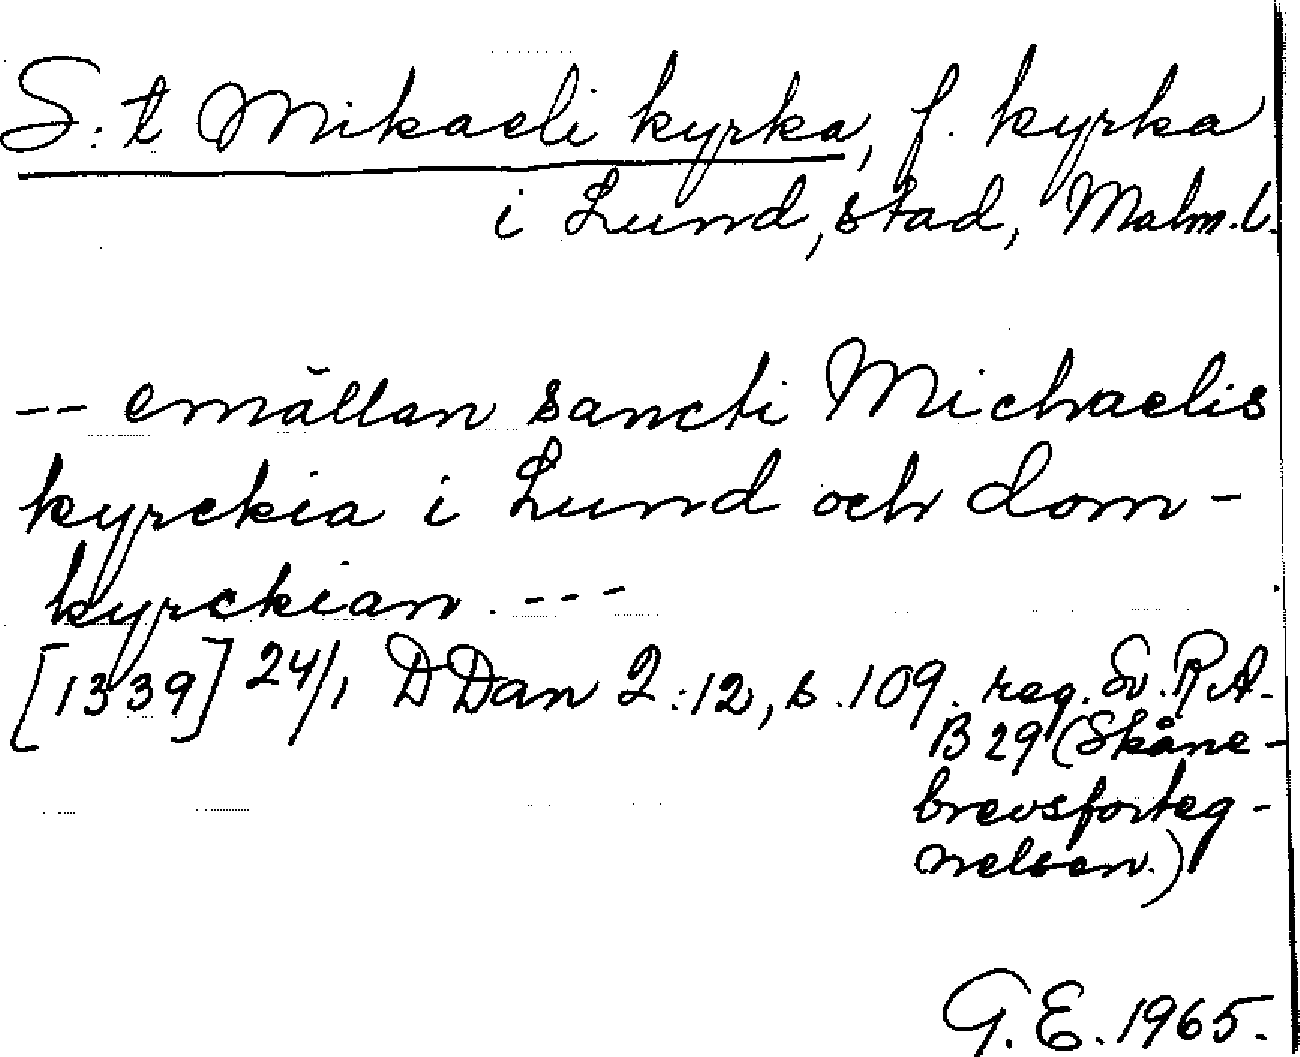 S:t Mikaeli kyrka, f. kyrka
i Lund, stad, Malm.l.
-- emällan sancti Michaelis
kyrckia i Lund och dom-
kyrckian. ---
[1339] 24/1 DDan 2:12, s. 109. reg. Sv. RA.
B 29 (Skåne-
brevsforteg-
nelsen.)
G. E. 1965.